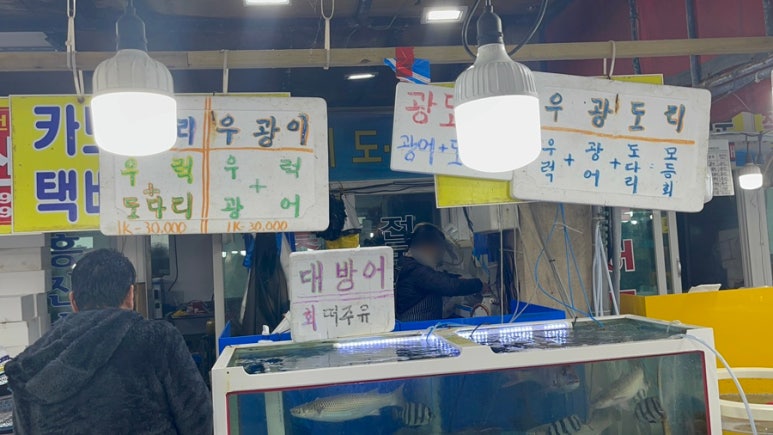 카
택배
리 우광이
우럭 우럭
+ +
도다리 광어
1K-30,000 1K-30,000
광도
광어+도
우광도리
우럭+광어+도다리=모듬회
대방어
회떠주유
도
전